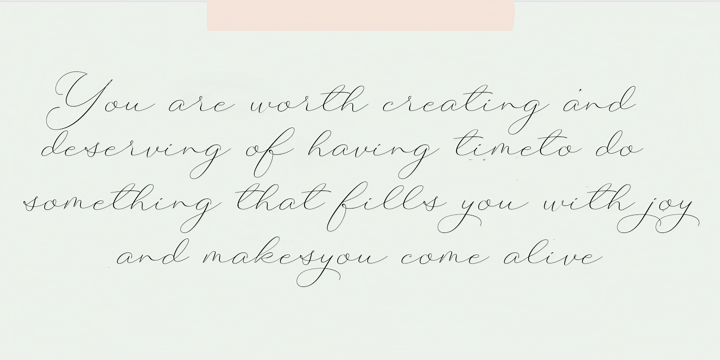 You are worth creating and
deserving of having timeto do
something that fills you with joy
and makesyou come alive